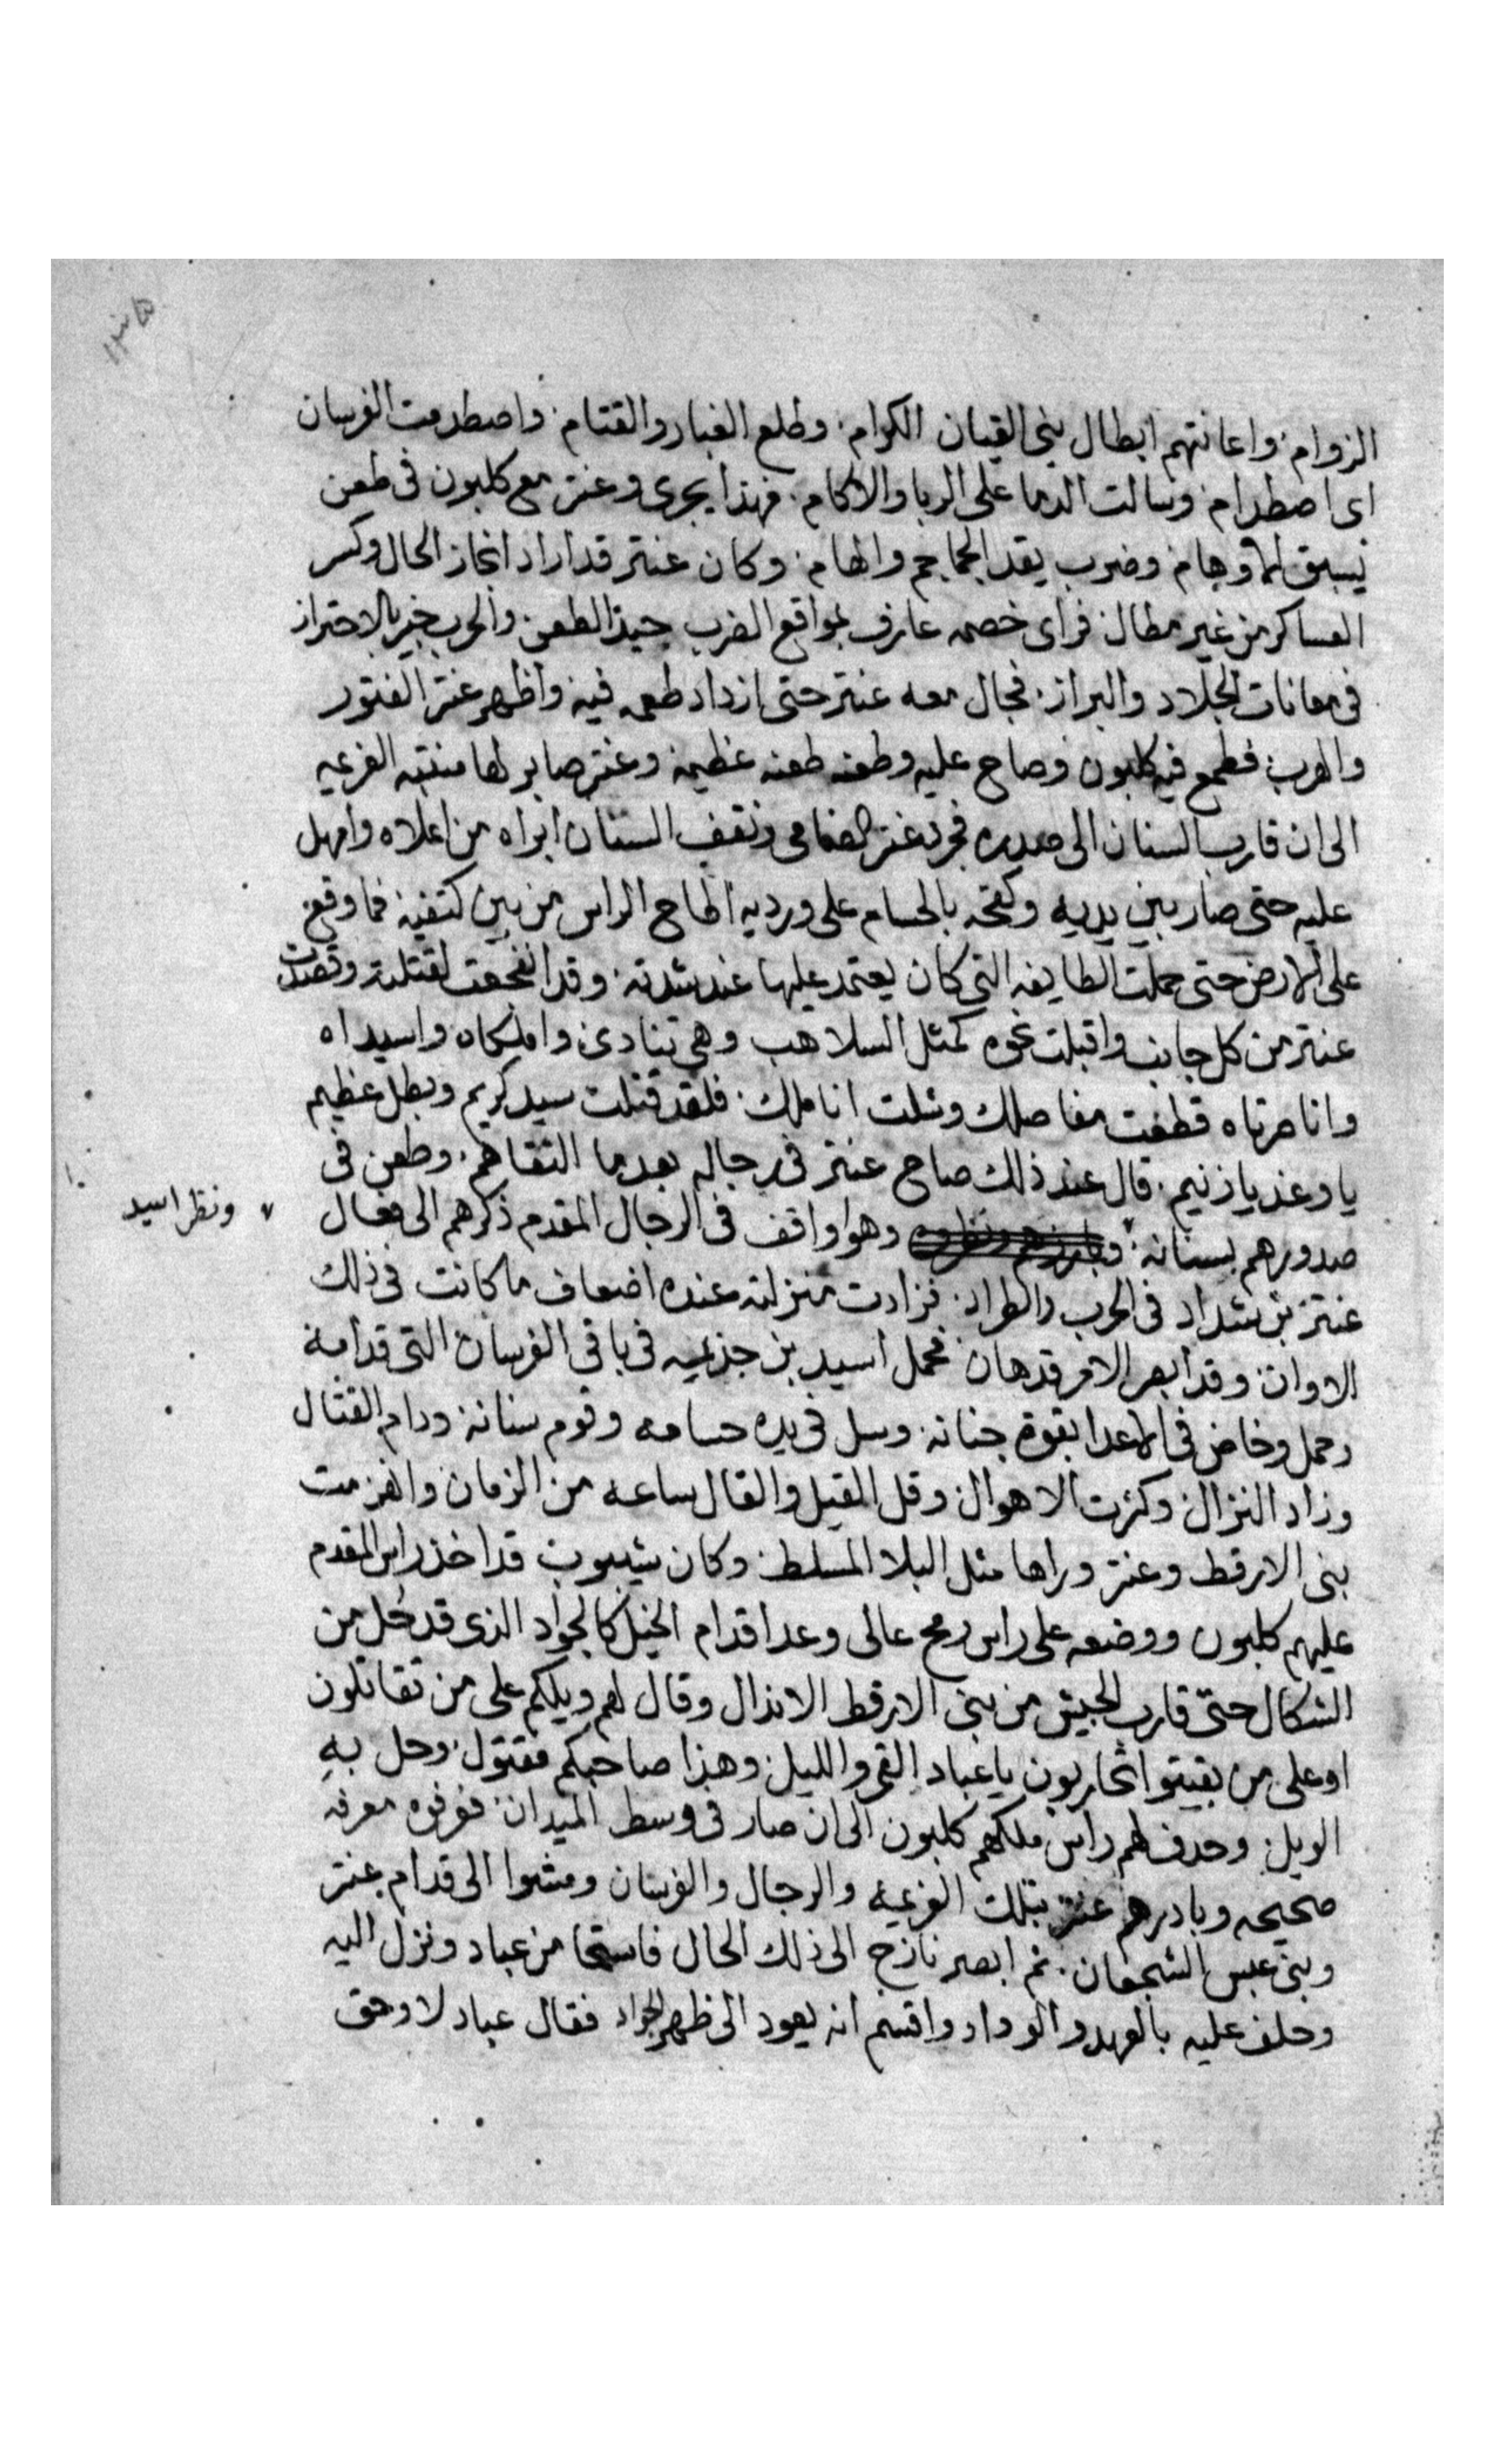 الزوام. واعانتهم ابطال بنى القيان الكرام. وطلع الغبار والقتام. واصطدمت الفرسان
اى اصطدام. وسالت الدما على الربا والاكام. فهذا يجرى وعنتر مع كلبون فى طعن
يسبق الاوهام وضرب يقد الجماجم والهام. وكان عنتر قد اراد انجاز الحال وكسر
العساكر من غير مطال. فراى خصمه عارف بمواقع الضرب جيد الطعن. والحرب خبير بالاحتراز
فى معانات الجلاد والبراز. فجال معه عنتر حتى ازداد طمعه فيه واظهر عنتر الفتور
والهرب. فطمع فيه كلبون وصاح عليه وطعنه طعنه عظيمة وعنتر صابر لها منتبه الغرعيه
الى ان قارب السنان الى صدره فجرد عنتر الضامى ونقف السنان ابراه من اعلاه وامهل
عليه حتى صار بين يديه وكفحه بالحسام على ورديه اطاح الراس من بين كتفيه فما وقع
على الارض حتى حملت الطايفه التى كان يعتمد عليها عند شدته. وقد انفجعت لقتلته وقصدت
عنتر من كل جانب واقبلت نحوه كمثل السلاهب وهى تنادى واملكاه واسيداه
واناصرتاه قطعت مفاصلك وشلت اناملك. فلقد قتلت سيد كريم وبطل عظيم
يا وغد يا زنيم. قال عند ذلك صاح عنتر فى رجاله بعدما التقاهم. وطعن فى
صدورهم بسنانه. ٧ وهوا واقف فى الرجال المقدم ذكرهم الى فعال
٧ ونظر اسيد
عنتر بن شداد فى الحرب والطراد. فزادت منزلته عنده اضعاف ما كانت فى ذلك
الاوان. وقد ابصر الامر قد هان فحمل اسيد بن جذيمه فى باقى الفرسان التى قدامه
وحمل وخاض فى الاعدا بقوة جنانه. وسل فى يده حسامه وقوم سنانه ودام القتال
وزاد النزال وكثرت الاهوال وقل القيل والقال ساعه من الزمان وانهزمت
بنى الارقط وعنتر وراها مثل البلا المسلط. وكان شيبوب قد اخذ راس المقدم
عليهم كلبون ووضعه على راس رمح عالى وعدا قدام الخيل كالجواد الذى قد حل من
الشكال حتى قارب الجيش من بنى الارقط الانذال وقال لهم ويلكم على من تقاتلون
او على من بقيتوا تحاربون يا عباد القمر والليل. وهذا صاحبكم مقتول. وحل به
الويل. وحدف لهم راس ملكهم كلبون الى ان صار فى وسط الميدان. فعرفوه معرفه
صحيحه وبادرهم عنتر بتلك العزيمة والرجال والفرسان ومشوا الى قدام عنتر
وبنى عبس الشجعان. ثم ابصر نازح الى ذلك الحال فاستحا من عباد ونزل اليه
وحلف عليه بالعهد والوداد واقسم انه يعود الى ظهر الجواد فقال عباد لا وحق